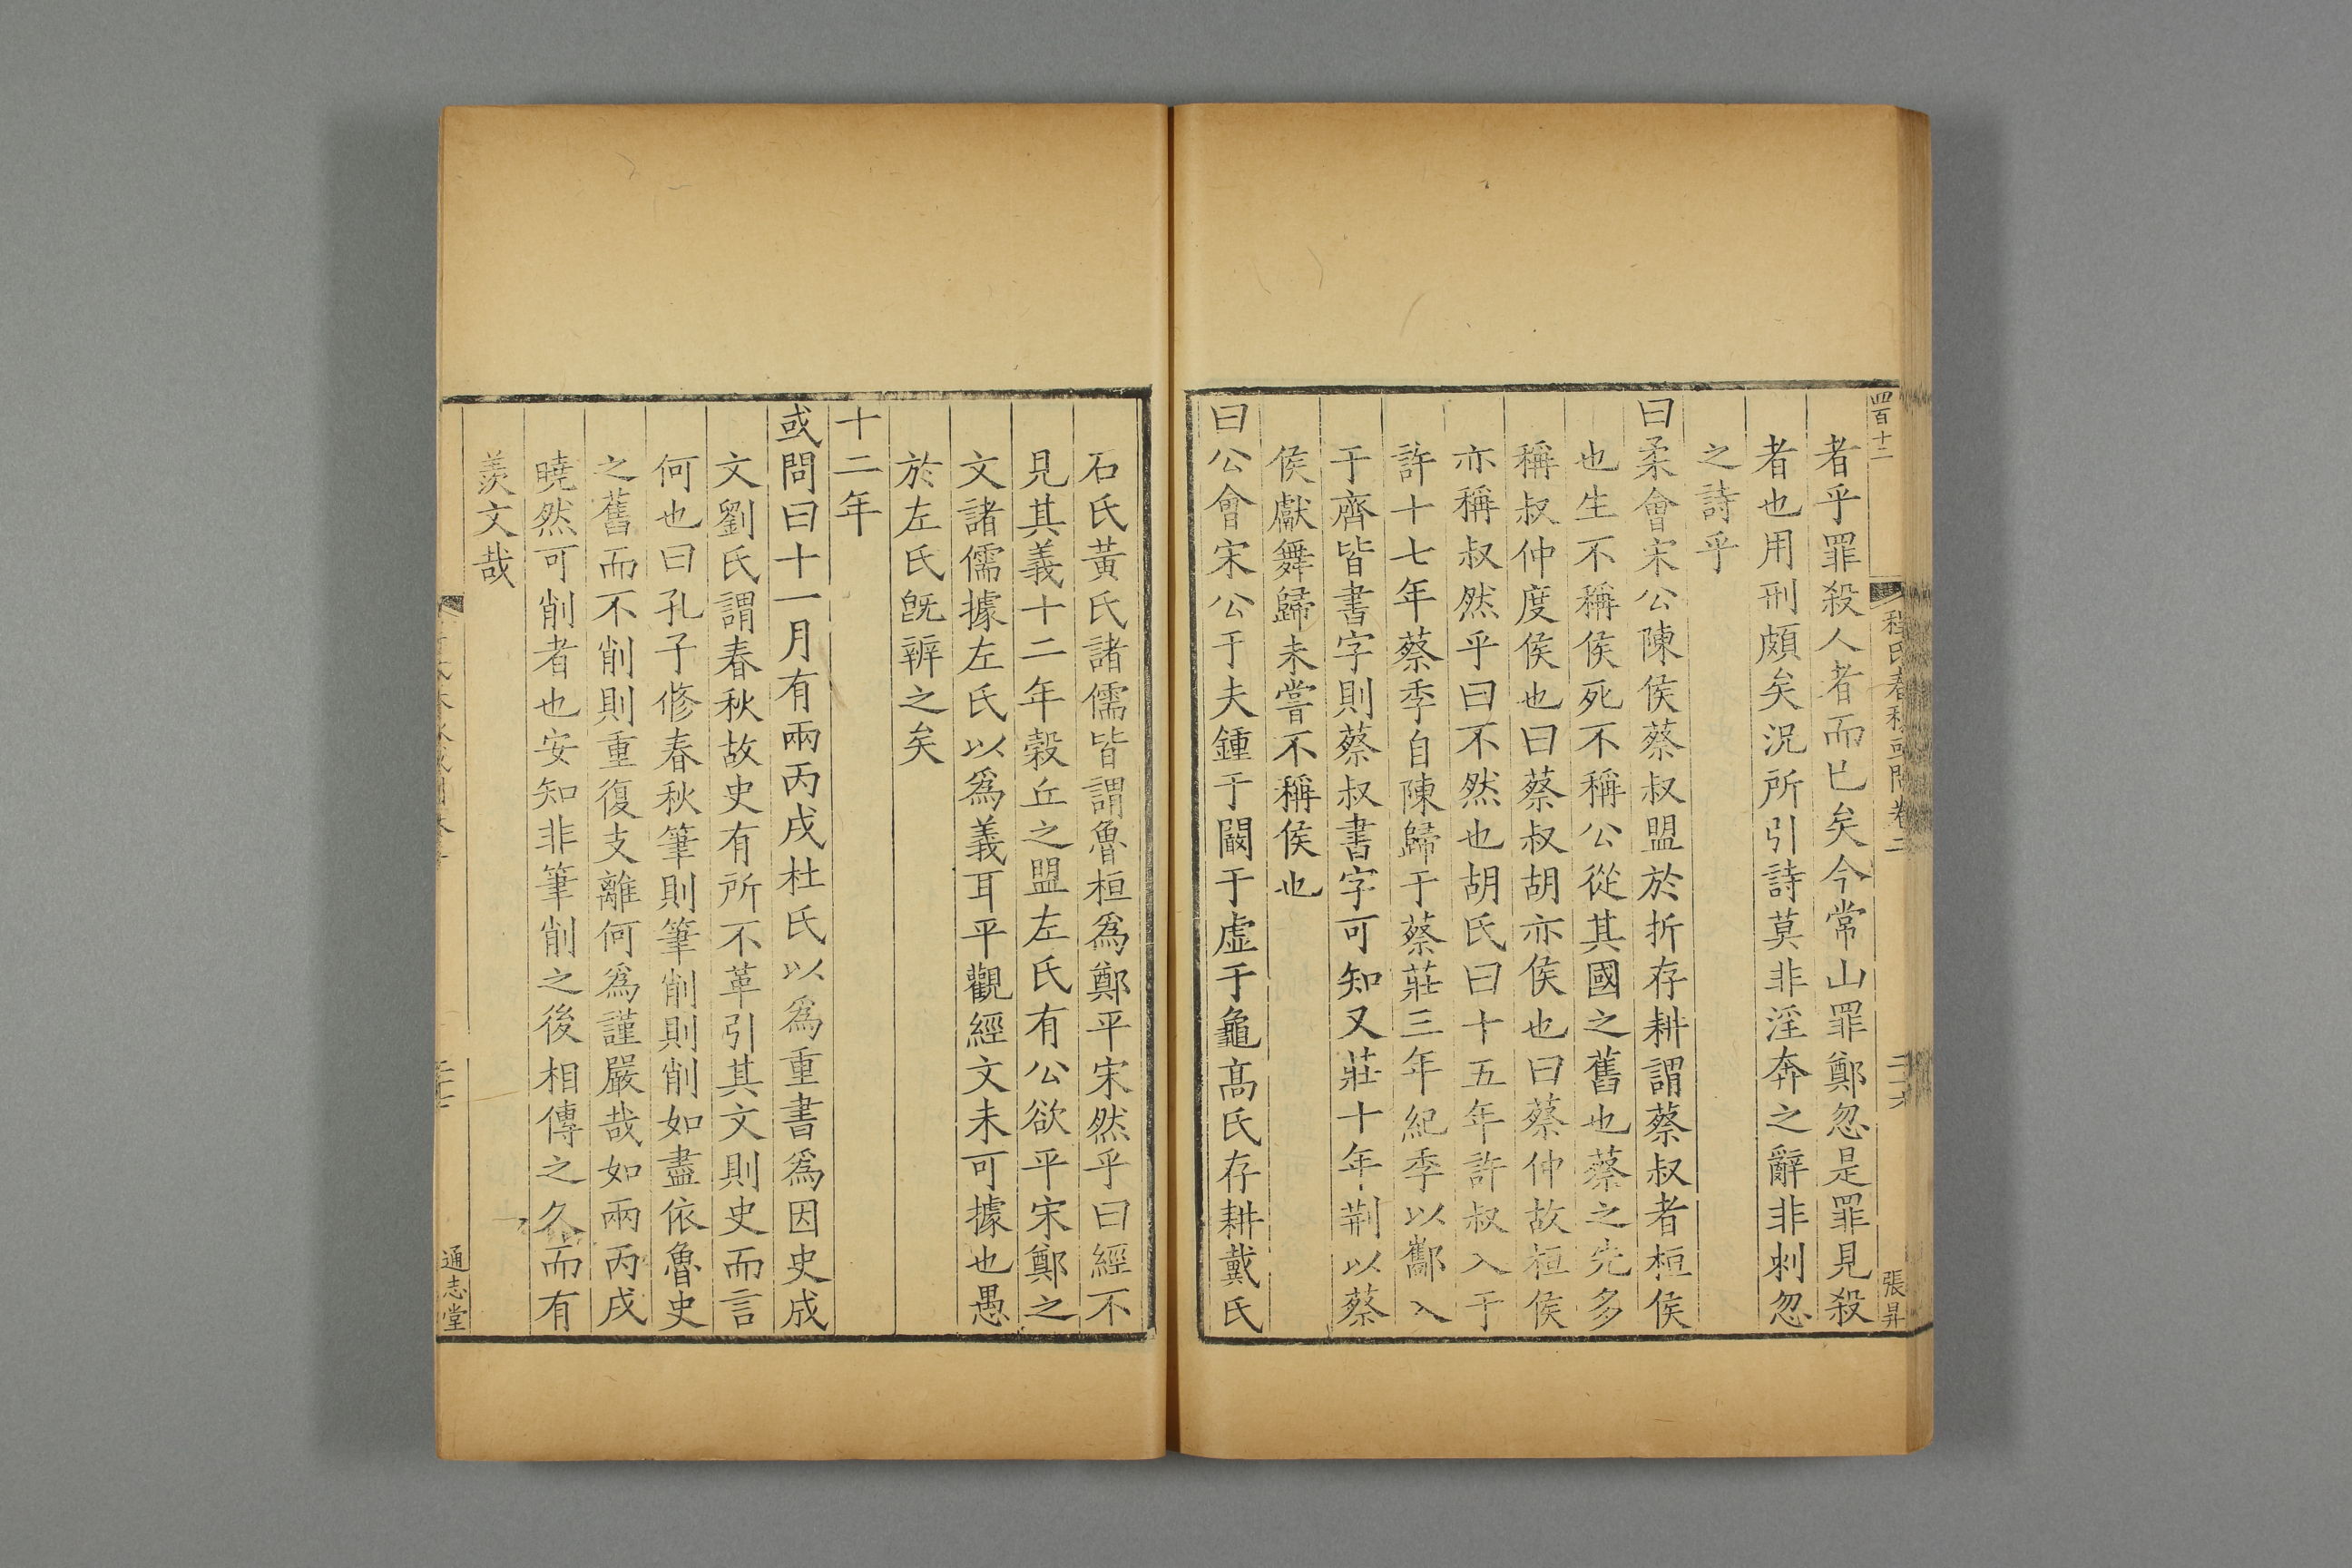 四百十二
程氏春秋或問卷二
二十六
張昇
者乎罪殺人者而已矣今常山罪鄭忽是罪見殺
者也用刑頗矣況所引詩莫非淫奔之辭非刺忽
之詩乎
曰柔會宋公陳侯蔡叔盟於折存耕謂蔡叔者桓侯
也生不稱侯死不稱公從其國之舊也蔡之先多
稱叔仲度侯也曰蔡叔胡亦侯也曰蔡仲故桓侯
亦稱叔然乎曰不然也胡氏曰十五年許叔入于
許十七年蔡季自陳歸于蔡莊三年紀季以酅入
于齊皆書字則蔡叔書字可知又莊十年荆以蔡
侯獻舞歸未嘗不稱侯也
曰公會宋公于夫鍾于闞于虛于龜髙氏存耕戴氏
石氏黃氏諸儒皆謂魯桓為鄭平宋然乎曰經不
見其義十二年穀丘之盟左氏有公欲平宋鄭之
文諸儒據左氏以為義耳平觀經文未可據也愚
於左氏旣辨之矣
十二年
或問曰十一月有兩丙戌杜氏以為重書為因史成
文劉氏謂春秋故史有所不革引其文則史而言
何也曰孔子修春秋筆則筆削則削如盡依魯史
之舊而不削則重復支離何為謹嚴哉如兩丙戌
曉然可削者也安知非筆削之後相傳之久而有
羨文哉
通志堂